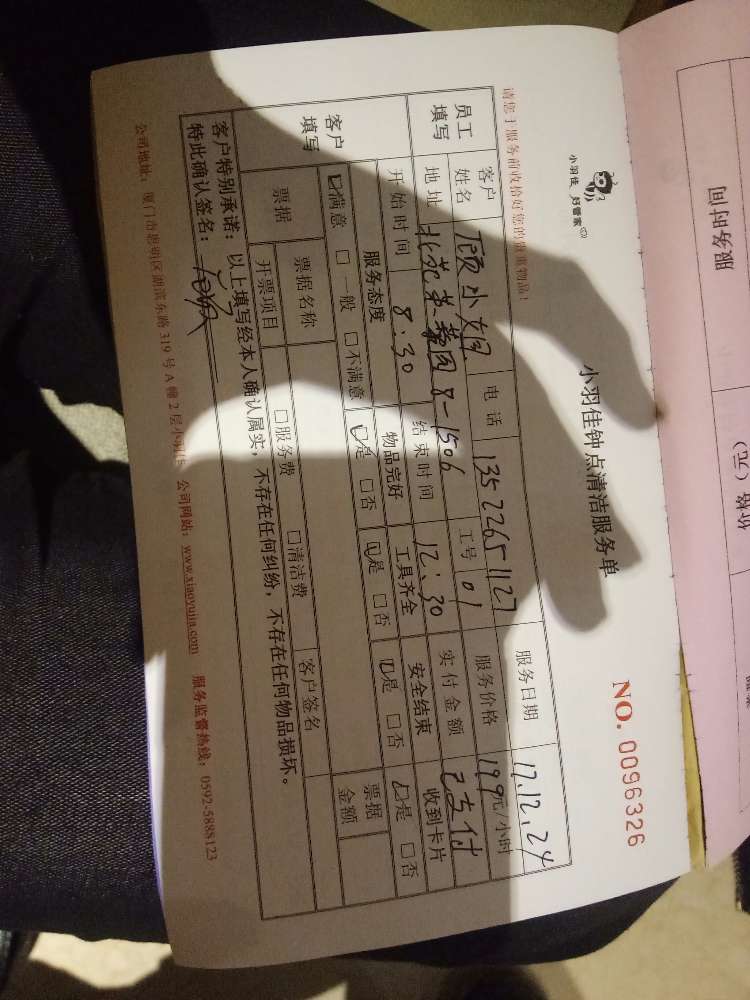 小羽佳 好管家
小羽佳钟点清洁服务单
NO. 0096326
请您于服务前收拾好您的贵重物品！
员工填写 客户姓名 顾小姐 电话 13522651127 服务日期 17.12.24
地址 8-1506 工号 01 服务价格 199元/小时
开始时间 8:30 结束时间 12:30 实付金额 已支付
客户填写 服务态度 物品完好 工具齐全 安全结束 收到卡片
☑满意 □一般 □不满意 ☑是 □否 ☑是 □否 ☑是 □否 ☑是 □否
票据 票据名称 □服务费 □清洁费 客户签名 票据金额
开票项目
客户特别承诺：以上填写经本人确认属实，不存在任何纠纷，不存在任何物品损坏。
特此确认签名：
公司地址：厦门市思明区湖滨东路319号A幢2层小羽佳 公司网站：www.xiaoyujia.com 服务监督热线：0592-5888123
服务时间
价格（元）